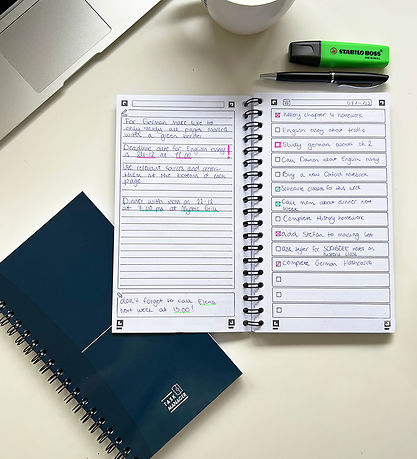 STABILO BOSS
ORIGINAL
For German make sure to
only study all pages marked
with a green border
Deadline date for English essay
is 24-12 at 17.00
Use relevant sources and
them at the bottom of each
page.
Dinner with mom on 22-12
at 7.00 pm at Mystic Grill
don't forget to call Elena
next week at 15:00!
History chapter 4 homework
English essay about traffic
Study german words ch. 2
Call Damon about English essay
Buy a new Oxford notebook
Schedule classes for this week
Call mom about dinner next
week
Complete History homework
add Stefan to mailing list
ask tyler for SCRIBZEE notes on
history class
complete German flashcards
TASK
MANAGER